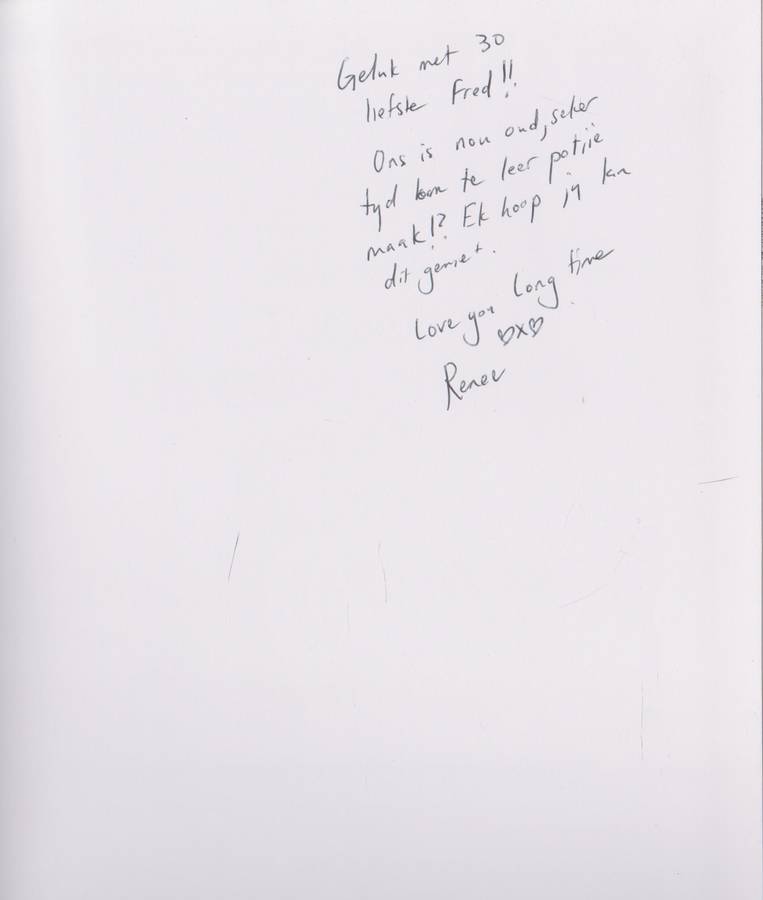 Geluk met 30
liefste Fred!!
Ons is nou oud, seker
tyd om te leer potjie
maak!? Ek hoop jy kan
dit geniet.
Love you long time
♡x♡
Renee